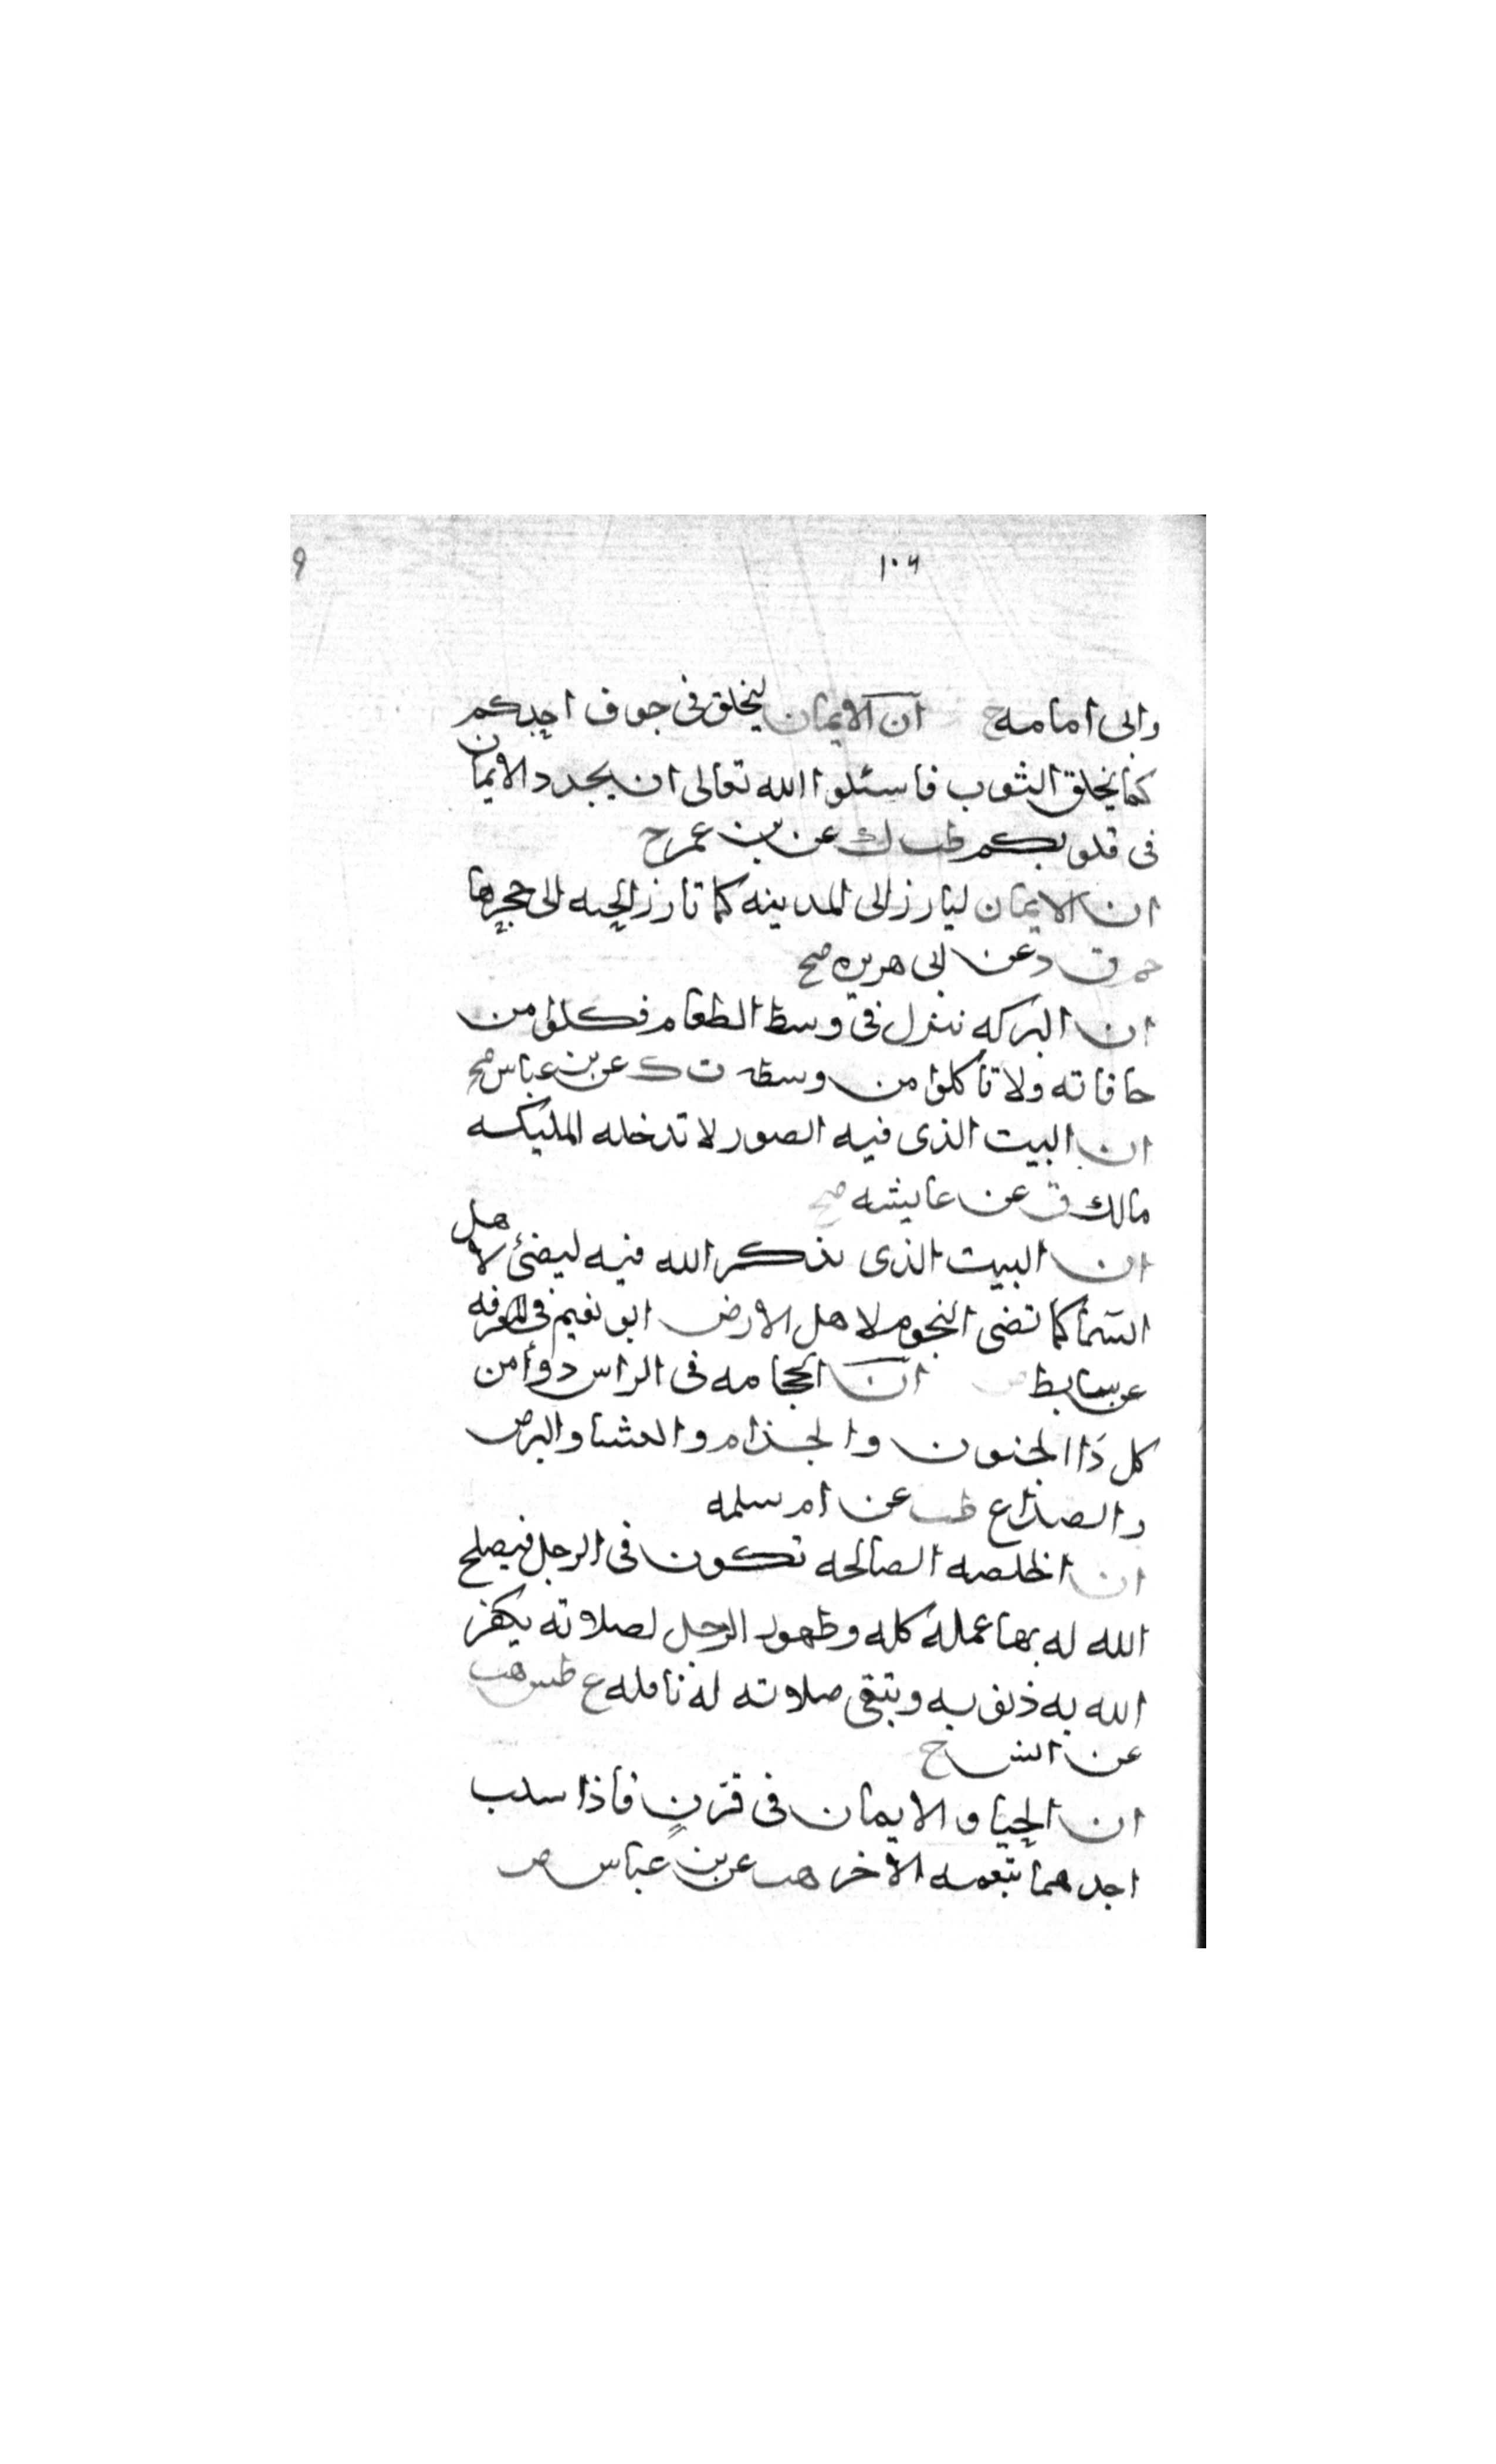 ١٠٦
وابى امامه ح ان الايمان ليخلق فى جوف احدكم
كما يخلق الثوب فاسئلوا الله تعالى ان يجدد الايمان
فى قلوبكم طب ك عن بن عمر ح
ان الايمان ليارز الى المدينه كما تارز الحيه الى حجرها
حم ق د عن ابى هريره صح
ان البركه تنزل فى وسط الطعام فكلوا من
حافاته ولا تأكلوا من وسطه ت ك عن بن عباس صح
ان البيت الذى فيه الصور لا تدخله المليكه
مالك ق عن عايشه صح
ان البيت الذى يذكر الله فيه ليضئ لاهل
السما كما تضى النجوم لاهل الارض ابو نعيم فى المعرفه
عن سابط ان الحجامه فى الراس دوأ من
كل دَا الجنون والجذام والعشا والبرص
والصداع طب عن ام سلمه
ان الخلصه الصالحه تكون فى الرجل فيصلح
الله له بها عمله كله وطهور الرجل لصلاته يكفر
الله به ذنوبه وتبقى صلاته له نافله ع طس هب
عن انس ح
ان الحيا والايمان فى قرنٍ فاذا سلب
احدهما تبعه الاخر هب عن بن عباس ض